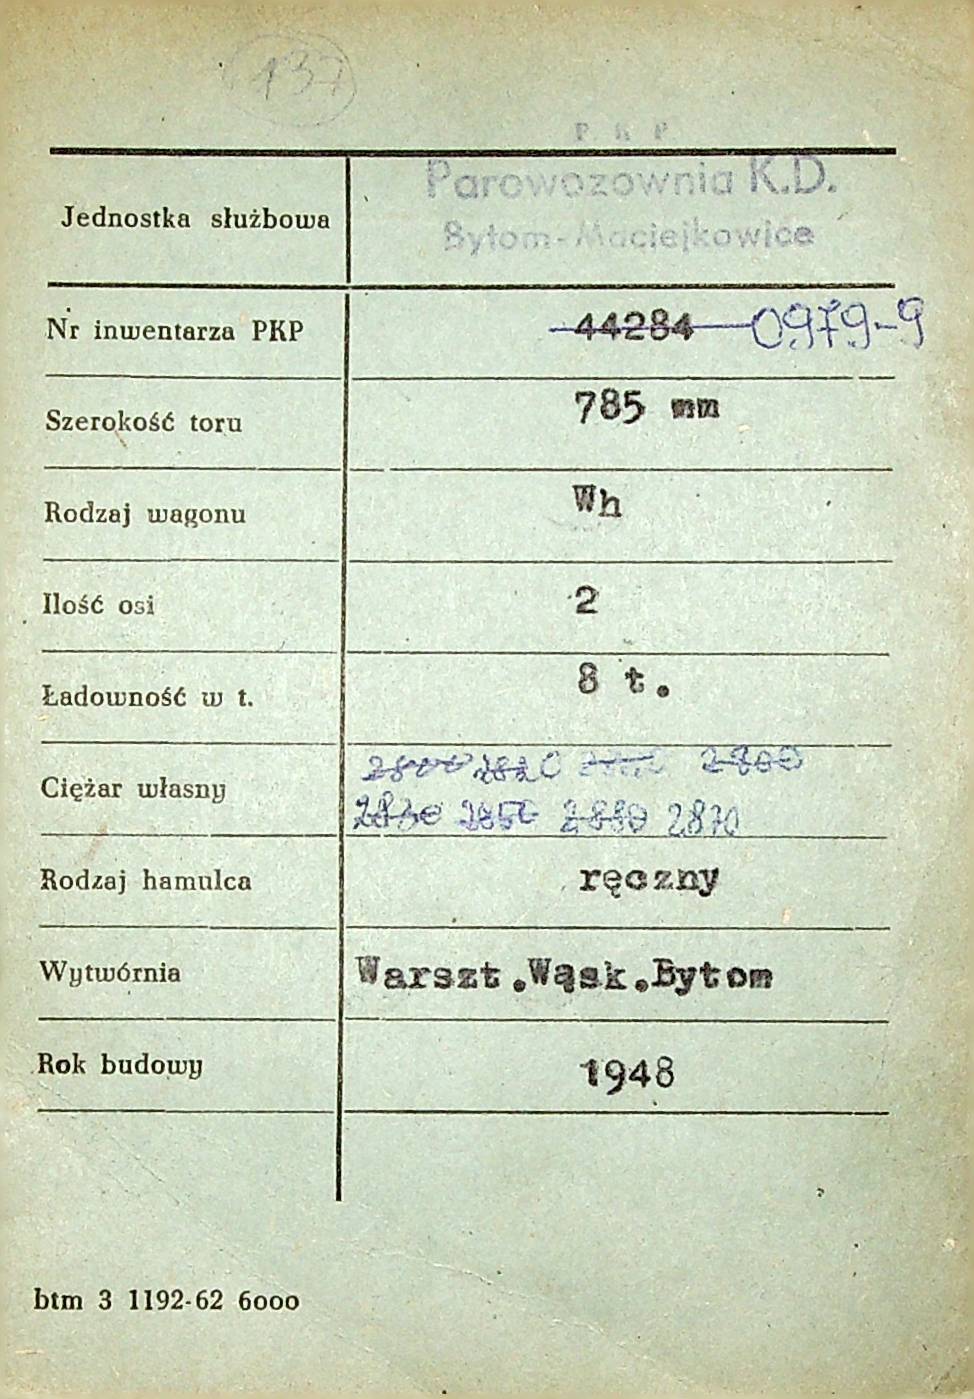 137
P K P
Parowozownia K.D.
Bytom-Maciejkowice
Jednostka służbowa
Nr inwentarza PKP 44284 0979-9
Szerokość toru 785 mm
Rodzaj wagonu Wh
Ilość osi 2
Ładowność w t. 8 t.
2820 2800
Ciężar własny
2830 2850 2880 2870
Rodzaj hamulca ręczny
Wytwórnia Warszt.Wąsk.Bytom
Rok budowy 1948
btm 3 1192-62 6000